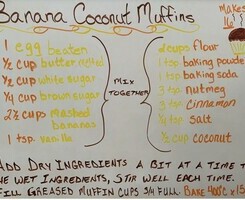 Banana Coconut Muffins
Makes
1 egg beaten
½ cup butter melted
½ cup white sugar
¼ cup brown sugar
2½ cups mashed
bananas
1 tsp vanilla
MIX
TOGETHER
2 cups flour
1 tsp baking powder
1 tsp baking soda
3 nutmeg
3 cinnamon
¼ tsp salt
½ cup coconut
Add Dry Ingredients a bit at a time to
the wet Ingredients, Stir well each time.
Fill Greased muffin cups 3/4 full. Bake 400°